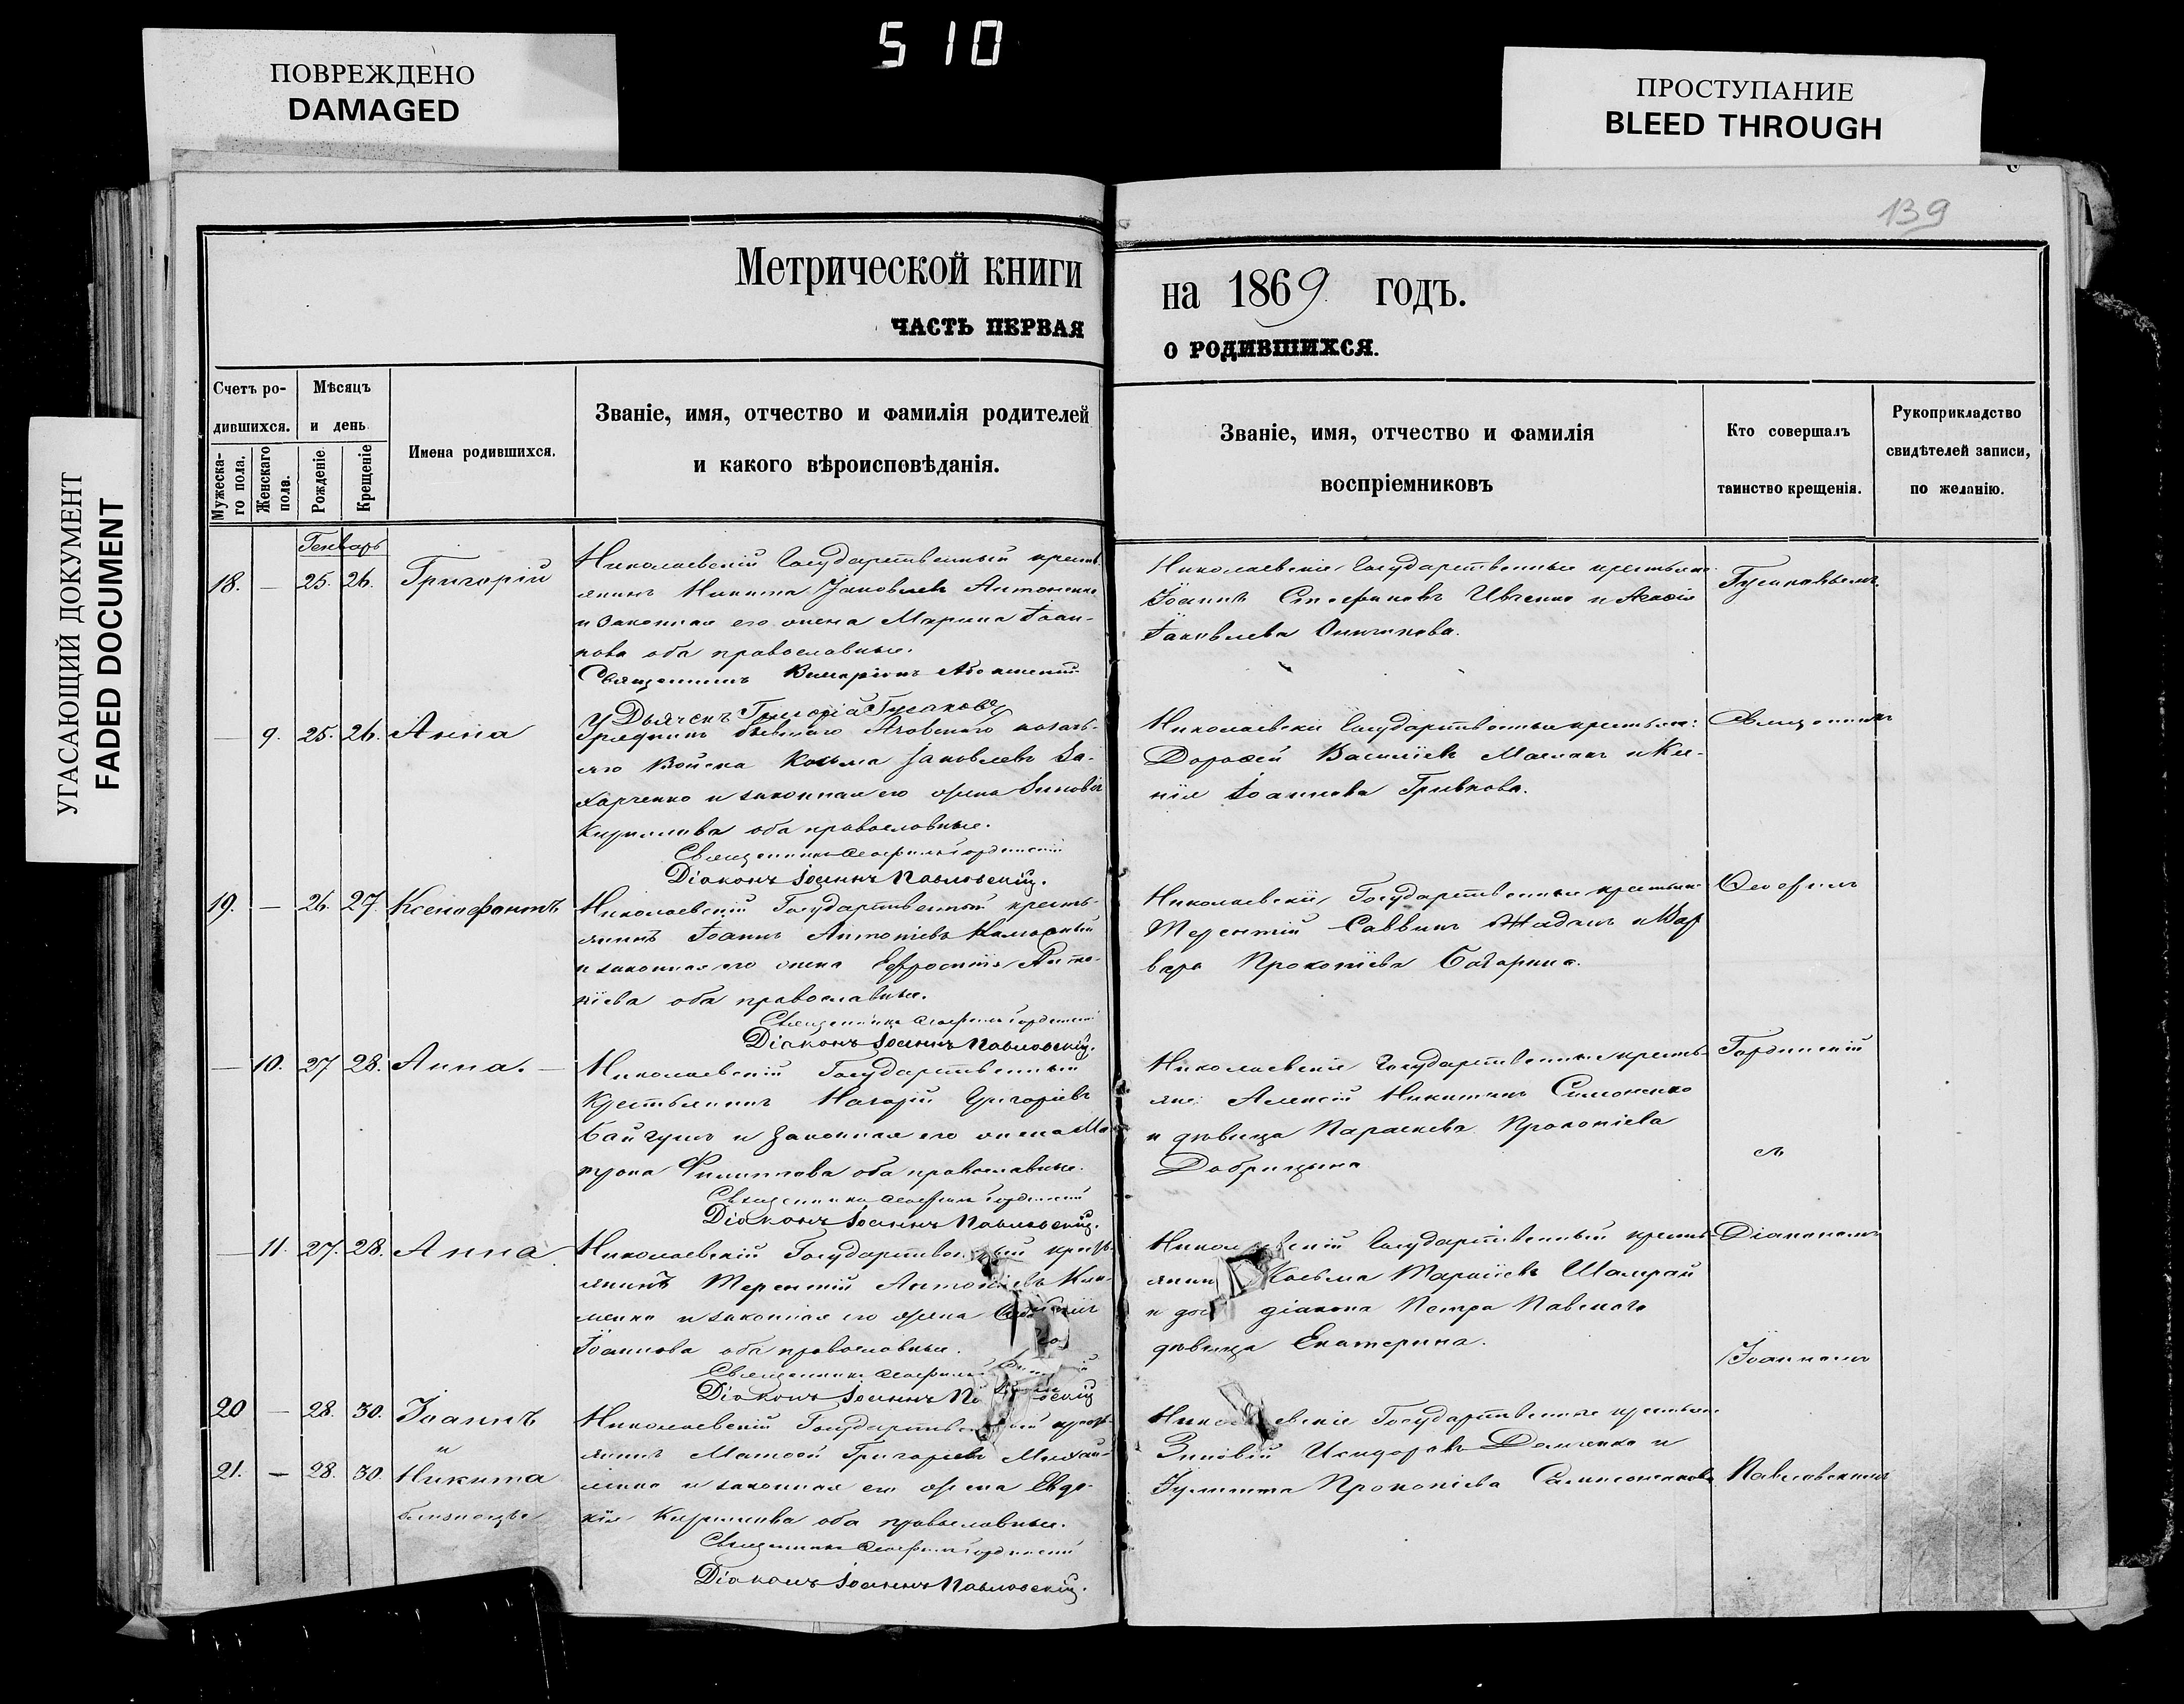 510
ПОВРЕЖДЕНО
DAMAGED
ПРОСТУПАНИЕ
BLEED THROUGH
УГАСАЮЩИЙ ДОКУМЕНТ
FADED DOCUMENT
139
Метрической книги
ЧАСТЬ ПЕРВАЯ
на 1869 годъ.
О РОДИВШИХСЯ.
Счетъ ро-
дившихся.
Мужеска-
го пола.
Женскаго
пола.
Мѣсяцъ
и день
Рожденіе.
Крещеніе
Имена родившихся.
Званіе, имя, отчество и фамилія родителей
и какого вѣроисповѣданія.
Званіе, имя, отчество и фамилія
воспріемниковъ
Кто совершалъ
таинство крещенія.
Рукоприкладство
свидѣтелей записи,
по желанію.
Генварь
18. — 25. 26. Григорій
Николаевскій Государственный кресть-
янинъ Никита Яковлевъ Антоненко
и законная его жена Марина Іоан-
нова оба православные.
Священникъ
Николаевскіе Государственные крестьяне
Іоаннъ Стефановъ Ивченко и Агафія
Іаковлева
— 9. 25. 26. Анна
Дьячекъ Григорій Гусаковъ
Урядникъ бывшаго Азовскаго казачь-
яго Войска Козьма Іаковлевъ За-
харченко и законная его жена Зиновія
Кириллова оба православные.
Священникъ Ѳеофилъ Гординскій
Діаконъ Іоаннъ Павловскій.
Николаевскіе Государственные крестьяне:
Дороѳей Василіевъ и Ксе-
нія Іоаннова
Священникъ
19. — 26. 27. Ксенофонтъ
Николаевскій Государственный кресть-
янинъ Іоаннъ Антоніевъ
и законная его жена Евфросинія Анто-
ніева оба православные.
Священникъ Ѳеофилъ Гординскій
Діаконъ Іоаннъ Павловскій.
Николаевскіе Государственные крестьяне
Терентій Саввинъ Жаданъ и Вар
вара Прокопіева
Ѳеофилъ
— 10. 27 28. Анна. —
Николаевскій Государственный
Крестьянинъ Назарій Григоріевъ
и законная его жена Ма
трона Филиппова оба православные.
Священникъ Ѳеофилъ Гординскій
Діаконъ Іоаннъ Павловскій.
Николаевскіе Государственные кресть-
яне: Алексій Никитинъ Симоненко
и дѣвица Параскева Прокопіева
Добрицына
Гординскій
съ
— 11. 27. 28. Анна
Николаевскій Государственный кресть-
янинъ Терентій Антоніевъ Кли-
менко и законная его жена
Іоаннова оба православные.
Священникъ Ѳеофилъ
Діаконъ Іоаннъ Павловскій
Николаевскій Государственный кресть-
янинъ Козьма Тарасіевъ Шамрай
и дочь діакона Петра Павскаго
дѣвица Екатерина.
Діакономъ
Іоанномъ
20 — 28. 30. Іоаннъ
и
21. — 28. 30. Никита
близнецы
Николаевскій Государственный кресть-
янинъ Матѳей Григоріевъ Михай-
ленко и законная его жена Евдо-
кія Кириллова оба православные.
Священникъ Ѳеофилъ Гординскій
Діаконъ Іоаннъ Павловскій.
Николаевскіе Государственные крестьяне
Зиновій Исидоровъ Демченко и
Іулитта Прокопіева
Павловскимъ